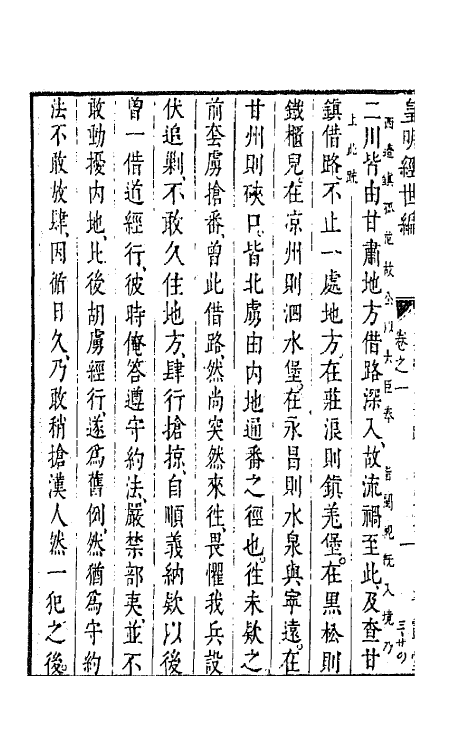 皇明經世編
卷之一
西邊鎮孤危故公以大臣奉
皆閱視既入境乃
上此疏
二川皆由甘肅地方借路深入故流禍至此及查甘
鎮借路不止一處地方在莊浪則鎮羌堡在黑松則
鐵櫃兒在凉州則泗水堡在永昌則水泉與寧遠在
甘州則硤口皆北虜由内地通番之徑也徃未欵之
前套虜搶番曾此借路然尚突然來徃畏懼我兵設
伏追剿不敢久住地方肆行搶掠自順義納欵以後
曾一借道經行彼時俺答遵守約法嚴禁部夷並不
敢動擾内地比後胡虜經行遂爲舊例然猶爲守約
法不敢放肆因循日久乃敢稍搶漢人然一犯之後